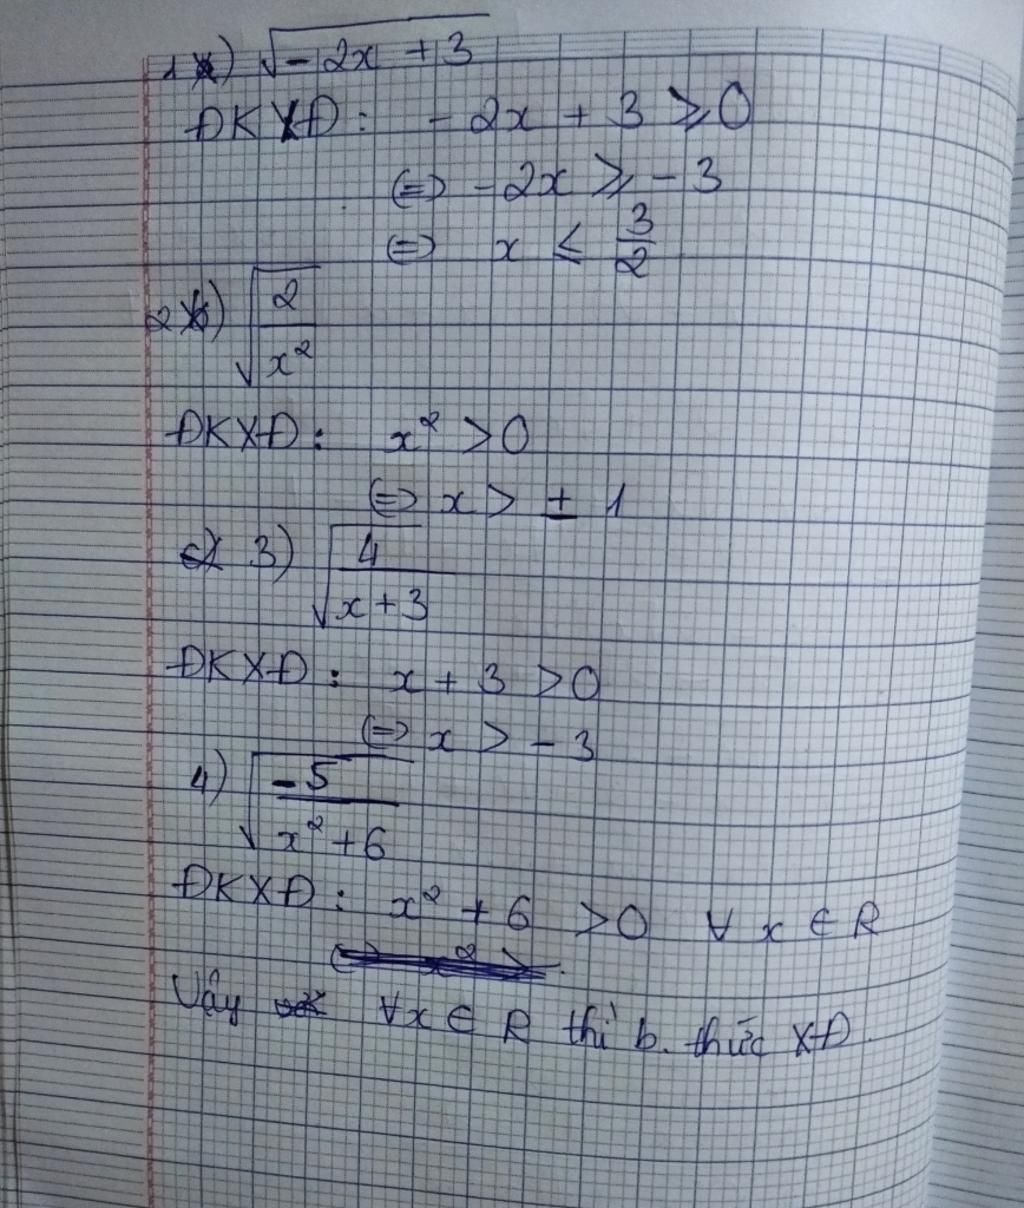 1) √(-2x + 3)
ĐKXĐ: -2x + 3 ≥ 0
⇔ -2x ≥ -3
⇔ x ≤ 3/2
2) √(2/x²)
ĐKXĐ: x² > 0
⇔ x > ± 1
3) √(4/(x+3))
ĐKXĐ: x + 3 > 0
⇔ x > -3
4) √(-5/(x²+6))
ĐKXĐ: x² + 6 > 0 ∀ x ∈ R
Vậy ∀x ∈ R thì b. thức XĐ.